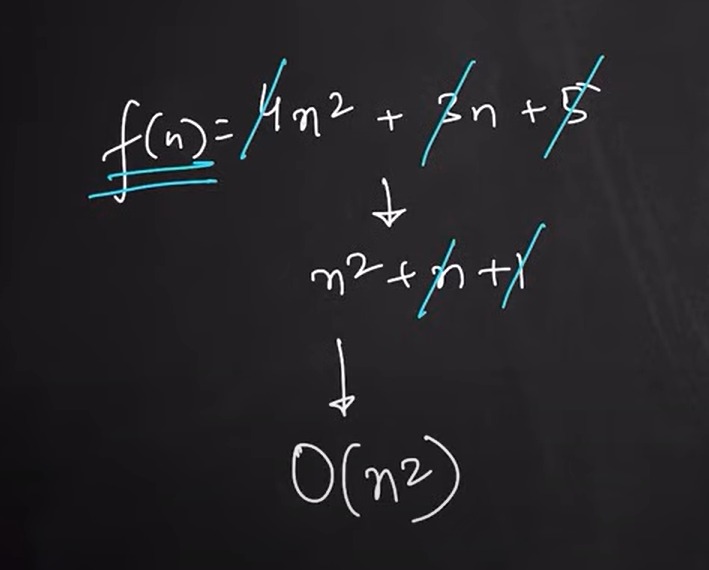 f(n) = 4n² + 3n + 5
↓
n² + n + 1
↓
O(n²)